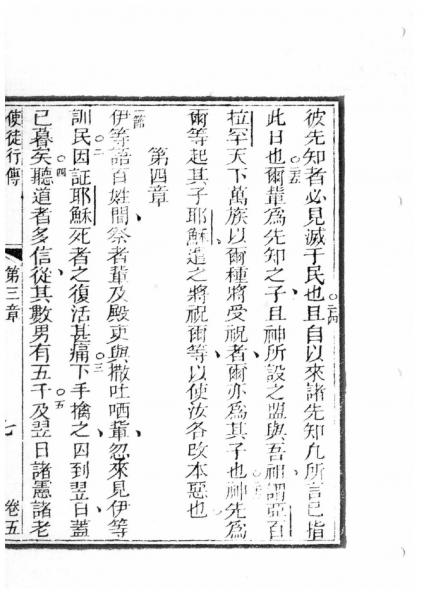 彼先知者必見滅于民也且自以來諸先知凡所言已指
此日也爾輩為先知之子且神所設之盟與吾祖謂亞百
拉罕天下萬族以爾種將受祝者爾亦為其子也神先為
爾等起其子耶穌遣之將祝爾等以使汝各改本惡也
第四章
伊等語百姓間祭者輩及殿吏與撒吐哂輩忽來見伊等
訓民因証耶穌死者之復活甚痛下手擒之囚到翌日蓋
已暮矣聽道者多信從其數男有五千及翌日諸憲諸老
使徒行傳
第三章
七
卷五